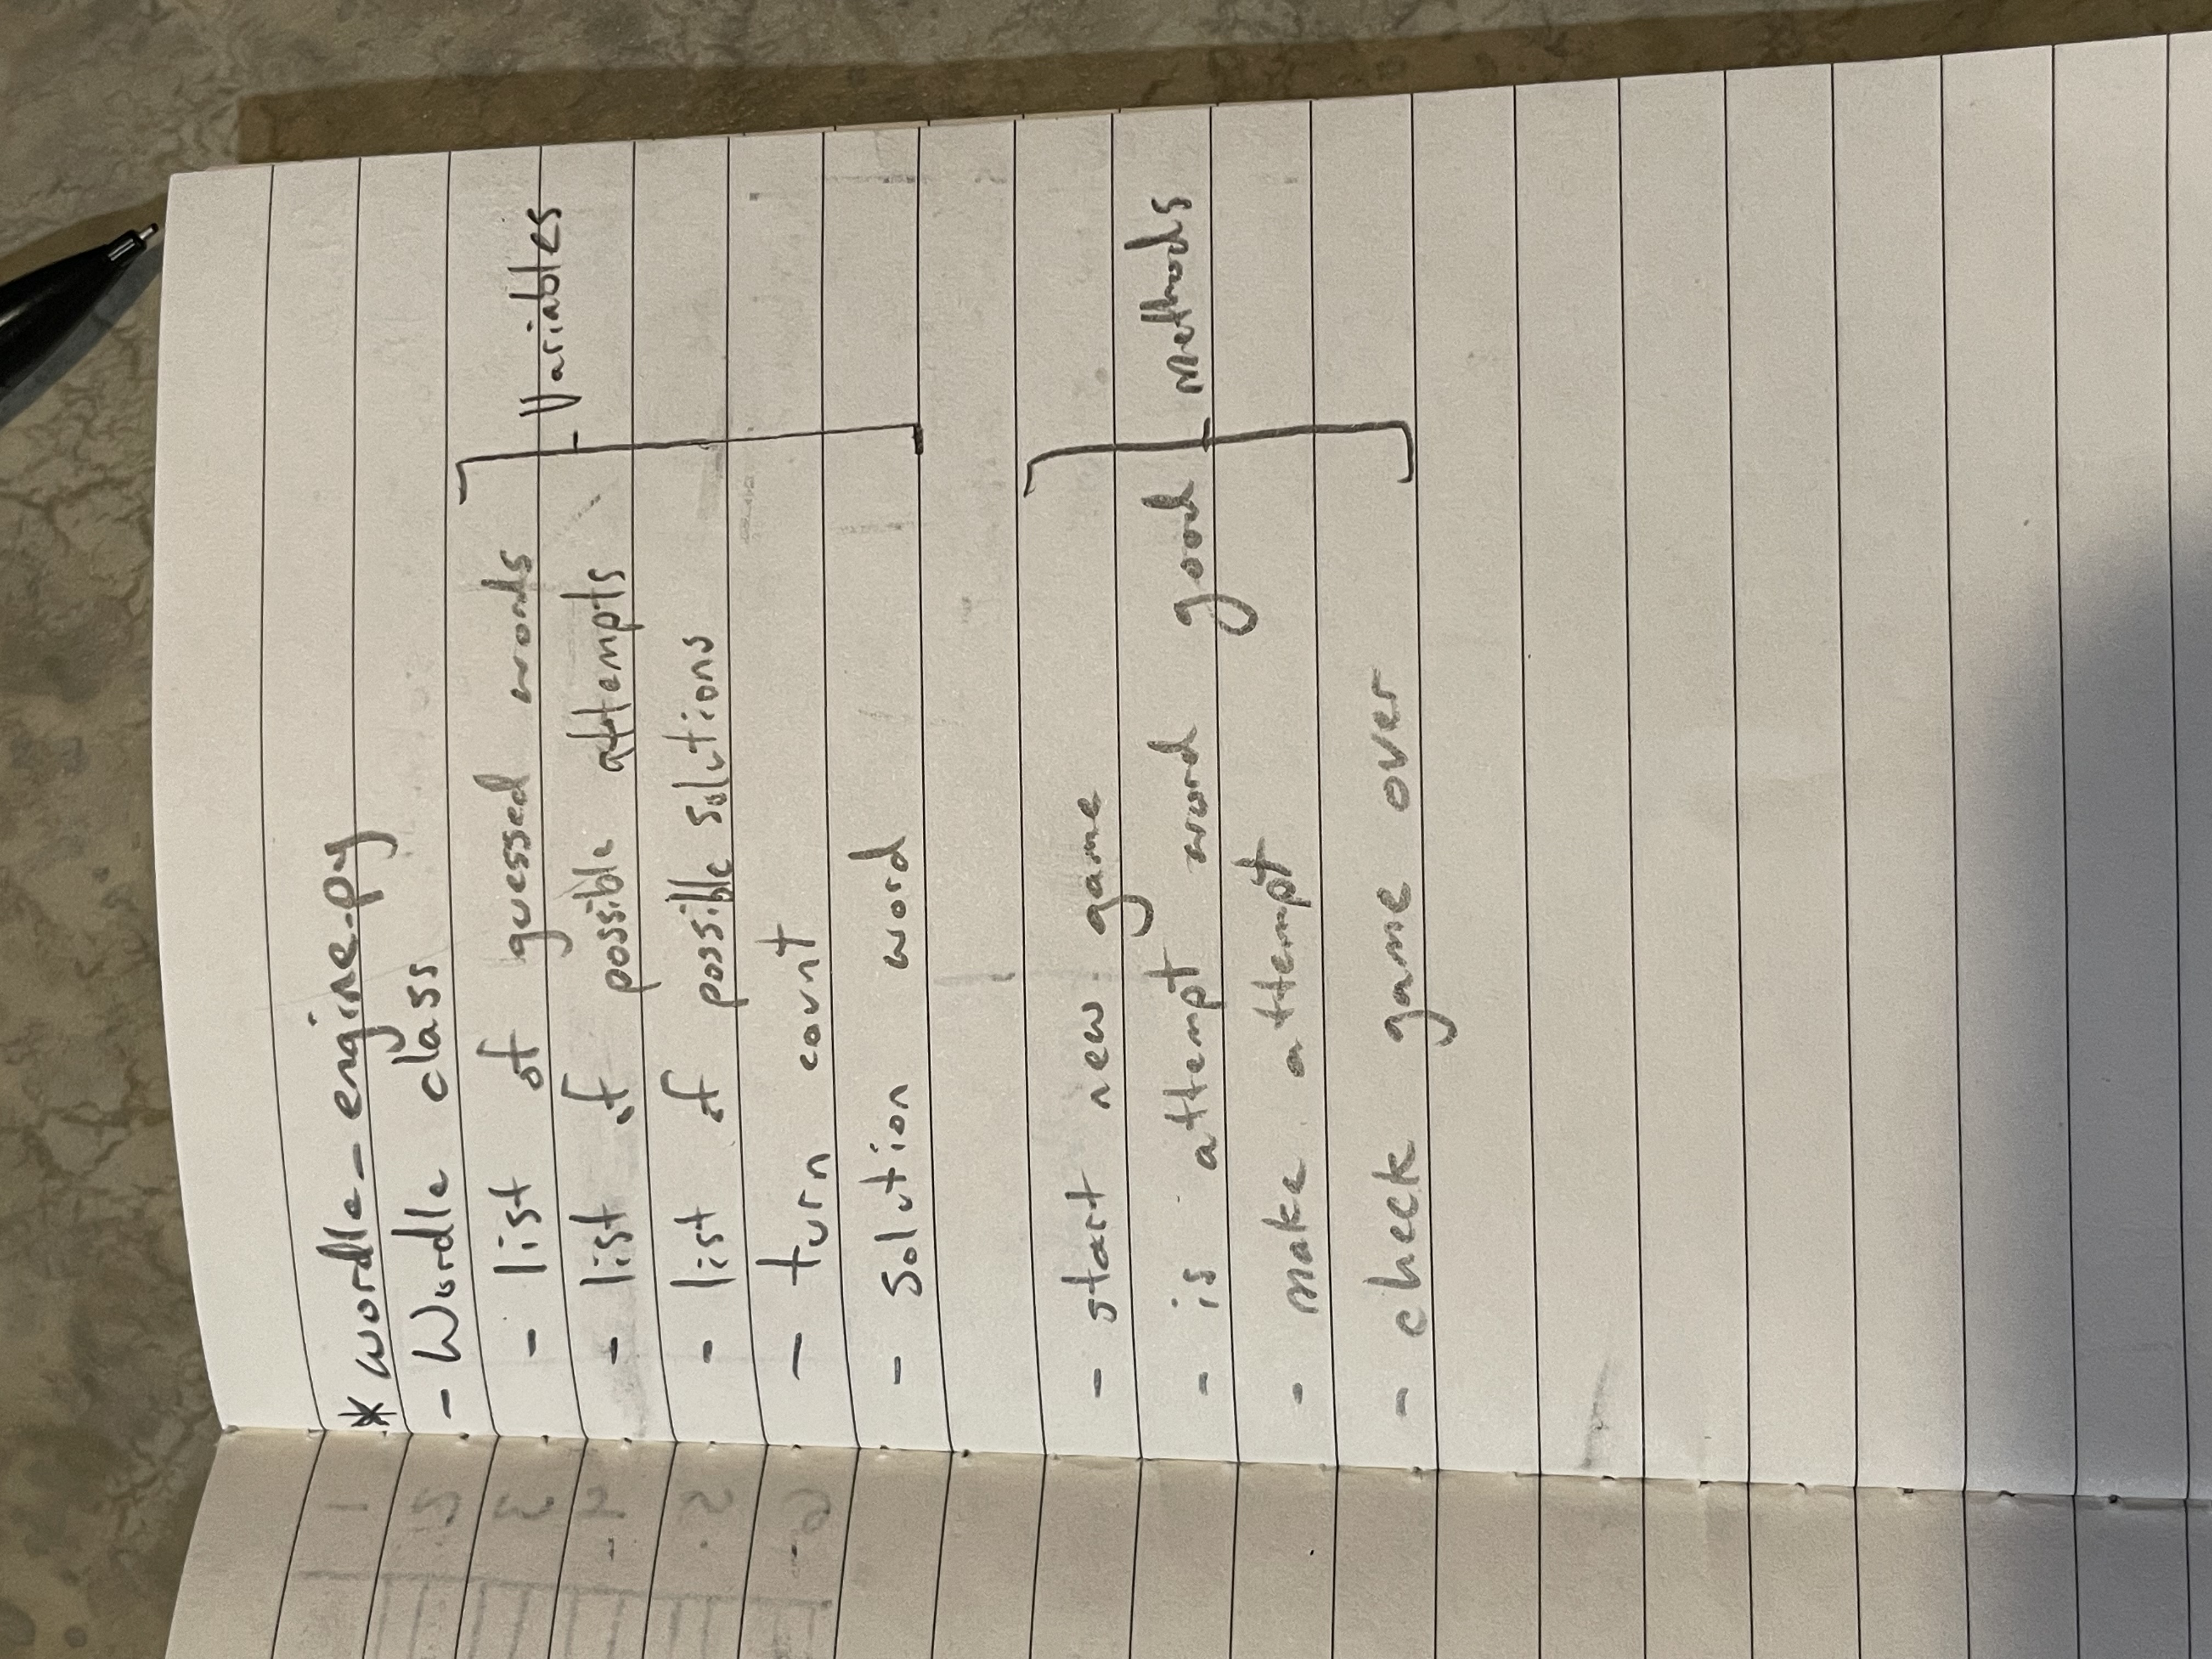 * wordle_engine.py
- Wordle class
- list of guessed words
- list of possible attempts
Variables
- list of possible solutions
- turn count
- solution word
- start new game
- is attempt word good
methods
- make attempt
- check game over